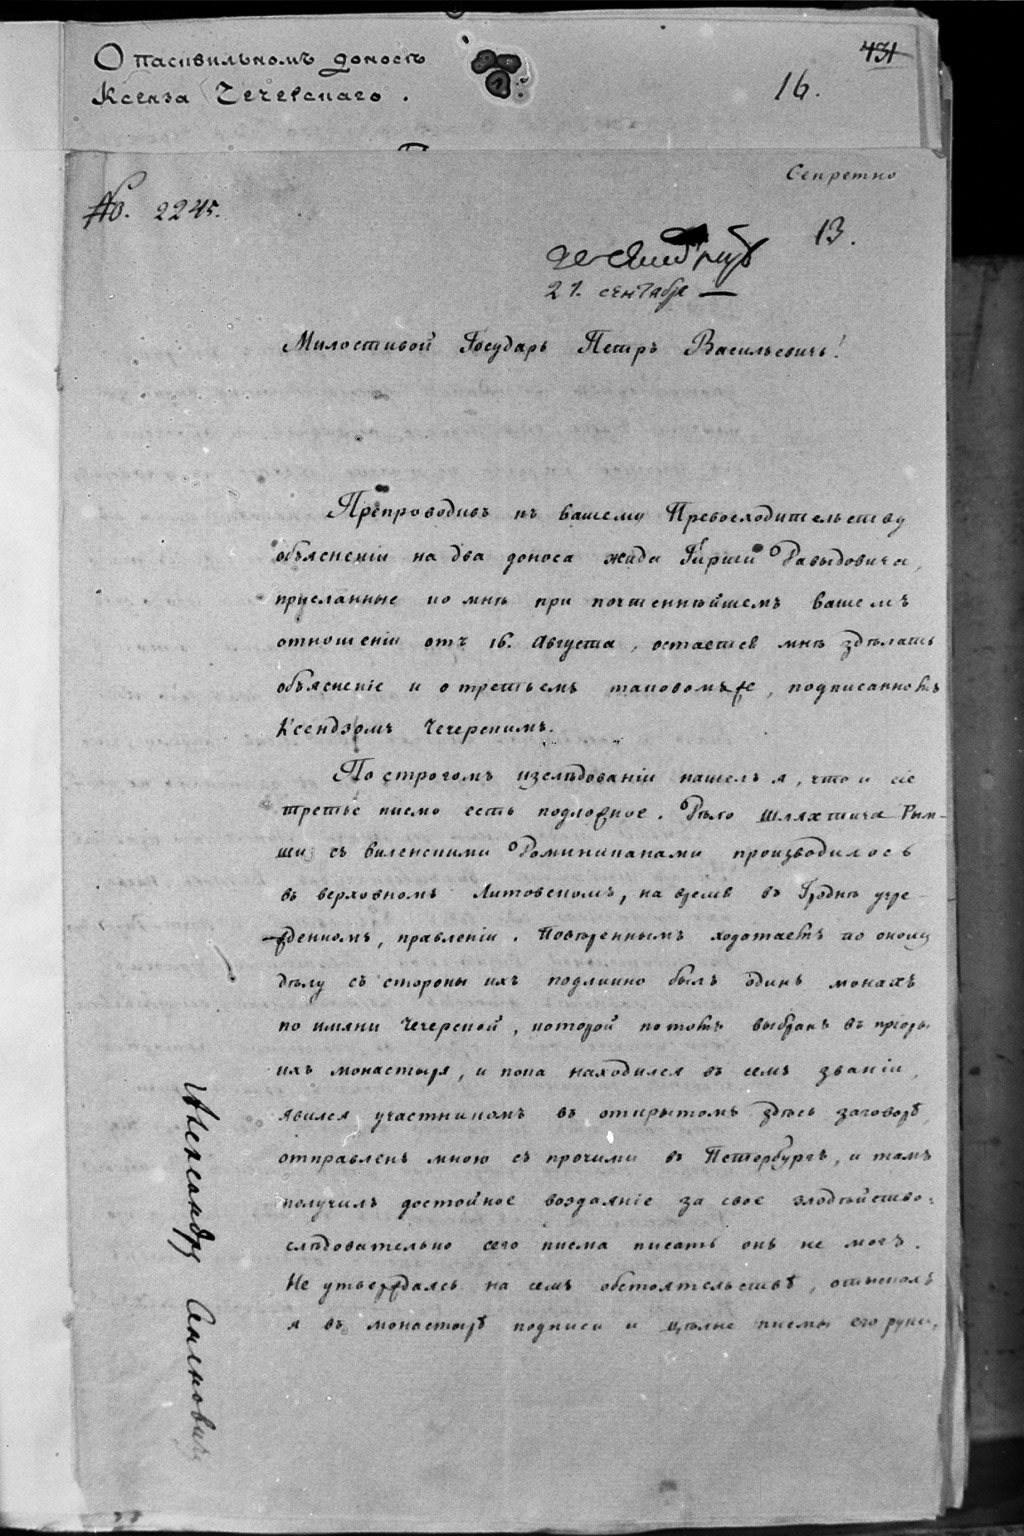 О пасквильномъ доносѣ
Ксенза Чечерскаго.
431
16.
Секретно
No. 2245.
13.
21. сентября
Милостивой Государь Петръ Васильевичь!
Препроводивъ къ вашему Превосходительству
объясненiи на два доноса жида Гирши Давыдовича,
присланные ко мнѣ при почтеннѣйшемъ вашемъ
отношенiи отъ 16. Августа, остается мнѣ здѣлать
объясненiе и о третьемъ таковомъ же, подписанномъ
Ксендзомъ Чечерскимъ.
По строгомъ изслѣдованiи нашелъ я, что и сiе
третье писмо есть подложное. Дѣло шляхтича Рым-
ши съ виленскими Доминиканами производилось
въ верховномъ Литовскомъ, на время въ Гроднѣ учре-
жденномъ, правленiи. Повѣреннымъ ходотаемъ по оному
дѣлу съ стороны ихъ подлинно былъ одинъ монахъ
по имяни Чечерской, которой потомъ выбранъ въ прiоры
ихъ монастыря, и пока находился въ семъ званiи,
явился участникомъ въ открытомъ здѣсь заговорѣ,
отправленъ мною съ прочими въ Петербургъ, и тамъ
получилъ достойное воздаянiе за свое злодѣйство:
слѣдовательно сего писма писать онъ не могъ.
Не утверждаясь на семъ обстоятельствѣ, отыскалъ
я въ монастырѣ подписи и цѣлые писмы его руки,
Александръ